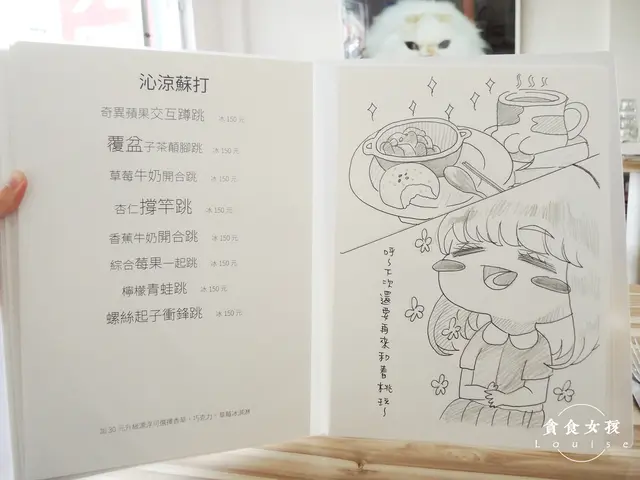 沁涼蘇打
奇異蘋果交互蹲跳 冰 150 元
覆盆子茶顛腳跳 冰 150 元
草莓牛奶開合跳 冰 150 元
杏仁撐竿跳 冰 150 元
香蕉牛奶開合跳 冰 150 元
綜合莓果一起跳 冰 150 元
檸檬青蛙跳 冰 150 元
螺絲起子衝鋒跳 冰 150 元
加 30 元升級漂浮可選擇香草、巧克力、草莓冰淇淋
呼~下次還要再來和春桃玩~
貪食女孩
Louise